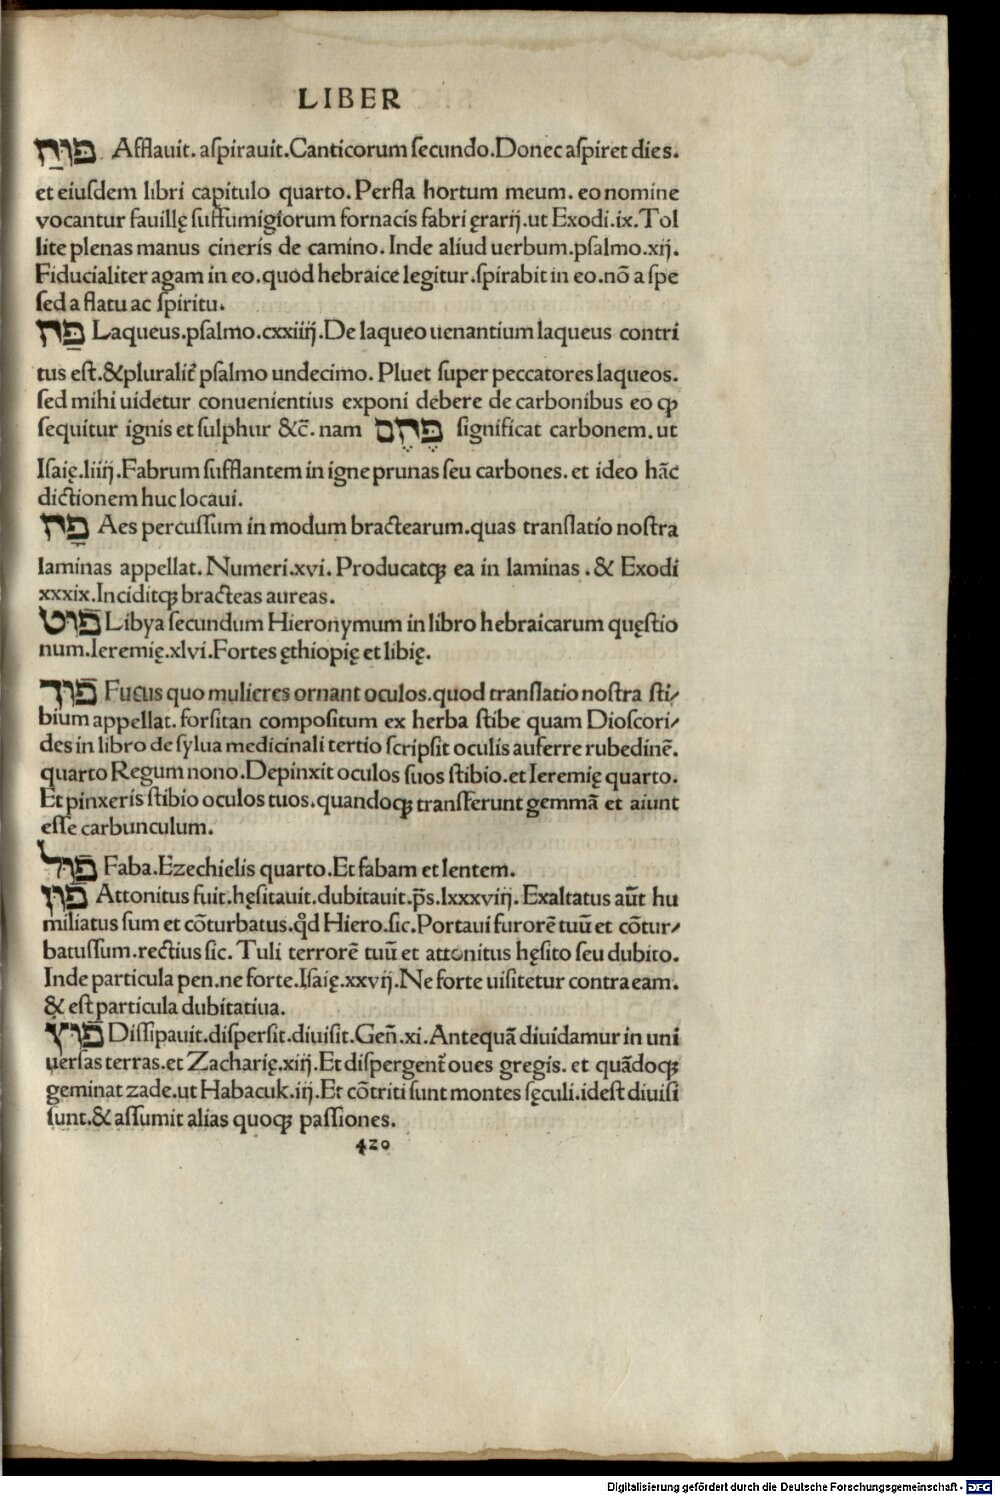 LIBER
פּוּחַ Afflauit. aſpirauit.Canticorum ſecundo.Donec aſpiret dies.
et eiuſdem libri capitulo quarto. Perfla hortum meum. eo nomine
vocantur fauillę ſuffumigiorum fornacis fabri ęrarij.ut Exodi.ix.Tol
lite plenas manus cineris de camino. Inde aliud uerbum.pſalmo.xij.
Fiducialiter agam in eo.quod hebraice legitur.ſpirabit in eo.nō a ſpe
ſed a flatu ac ſpiritu.
פַּח Laqueus.pſalmo.cxxiiij.De laqueo uenantium laqueus contri
tus eſt.&pluralit̄ pſalmo undecimo. Pluet ſuper peccatores laqueos.
ſed mihi uidetur conuenientius exponi debere de carbonibus eo ꝙ
ſequitur ignis et ſulphur &c̄. nam פֶּחֶם ſignificat carbonem. ut
Iſaię.liiij.Fabrum ſufflantem in igne prunas ſeu carbones. et ideo hāc
dictionem huc locaui.
פָּח Aes percuſſum in modum bractearum.quas tranſlatio noſtra
laminas appellat. Numeri.xvi. Producatqꝫ ea in laminas . & Exodi
xxxix.Inciditqꝫ bracteas aureas.
פּוּט Libya ſecundum Hieronymum in libro hebraicarum quęſtio
num.Ieremię.xlvi.Fortes ęthiopię et libię.
פּוּך Fucus quo mulieres ornant oculos.quod tranſlatio noſtra ſti⸗
bium appellat. forſitan compoſitum ex herba ſtibe quam Dioſcori⸗
des in libro de ſylua medicinali tertio ſcripſit oculis auferre rubedinē.
quarto Regum nono.Depinxit oculos ſuos ſtibio.et Ieremię quarto.
Et pinxeris ſtibio oculos tuos.quandoqꝫ tranſferunt gemmā et aiunt
eſſe carbunculum.
פּוּל Faba.Ezechielis quarto.Et fabam et lentem.
פּוּן Attonitus fuit.hęſitauit.dubitauit.p̄s.lxxxviij. Exaltatus aūt hu
miliatus ſum et cōturbatus.qd̄ Hiero.ſic.Portaui furorē tuū et cōtur⸗
batuſſum.rectius ſic. Tuli terrorē tuū et attonitus hęſito ſeu dubito.
Inde particula pen.ne forte.Iſaię.xxvij.Ne forte uiſitetur contra eam.
& eſt particula dubitatiua.
פּוּץ Diſſipauit.diſperſit.diuiſit.Geñ.xi.Antequā diuidamur in uni
uerſas terras.et Zacharię.xiij.Et diſpergent̄ oues gregis. et quādoqꝫ
geminat zade.ut Habacuk.iij.Et cōtriti ſunt montes ſęculi.ideſt diuiſi
ſunt.& aſſumit alias quoqꝫ paſſiones.
420
Digitalisierung gefördert durch die Deutsche Forschungsgemeinschaft - DFG